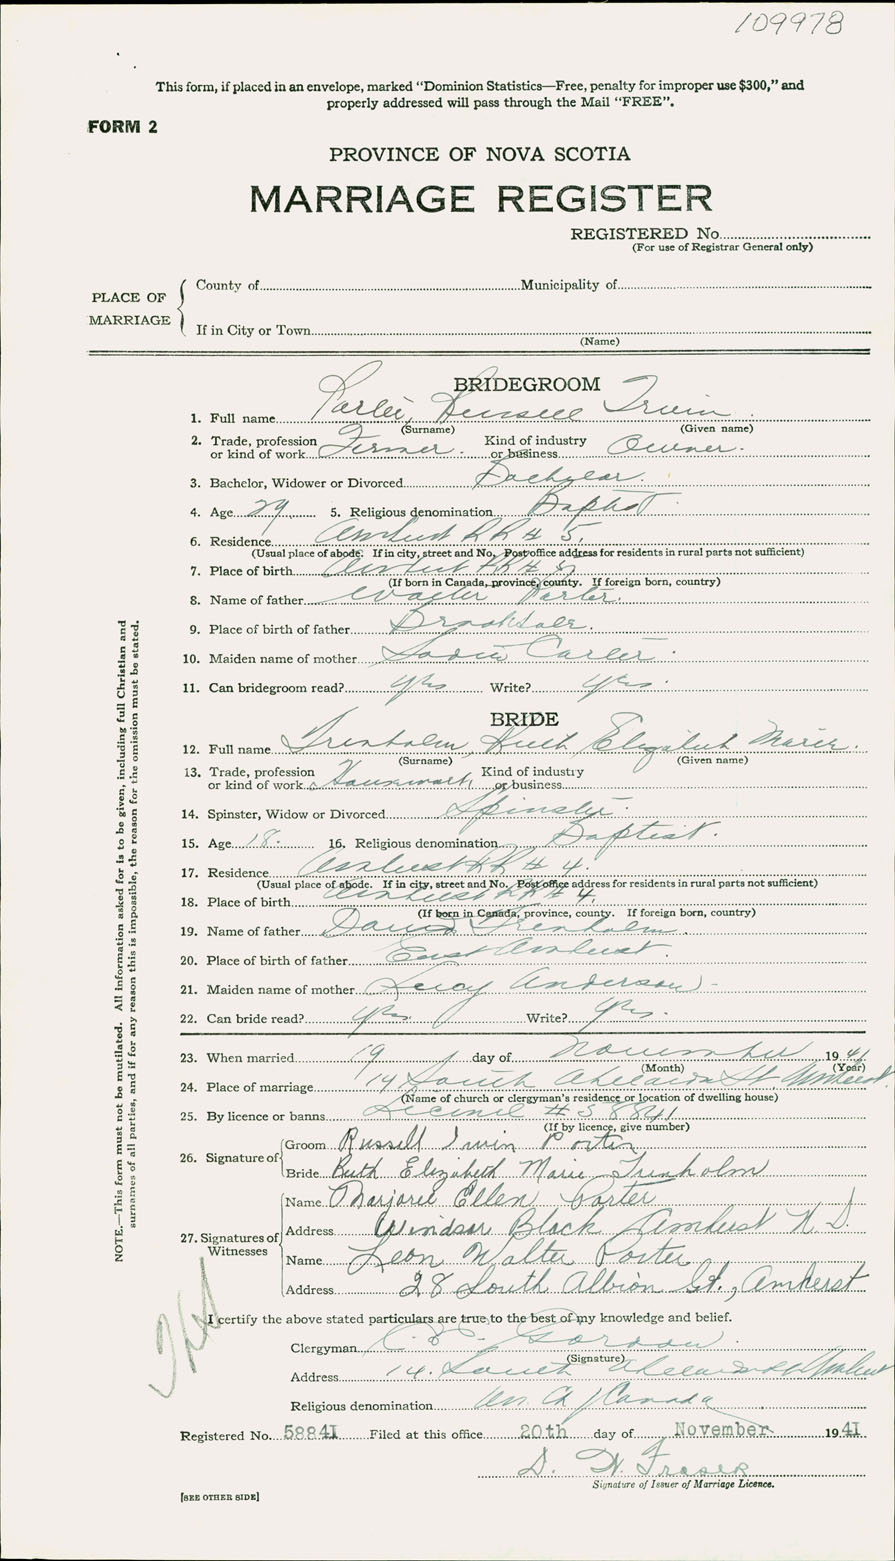 109978
This form, if placed in an envelope, marked "Dominion Statistics—Free, penalty for improper use $300," and
properly addressed will pass through the Mail "FREE".
FORM 2
PROVINCE OF NOVA SCOTIA
MARRIAGE REGISTER
REGISTERED No.
(For use of Registrar General only)
PLACE OF MARRIAGE
County of Municipality of
If in City or Town
(Name)
BRIDEGROOM
1. Full name Irwin
(Surname) (Given name)
2. Trade, profession or kind of work Kind of industry or business Owner.
3. Bachelor, Widower or Divorced
4. Age 29 5. Religious denomination Baptist
6. Residence Amherst R R # 5.
(Usual place of abode. If in city, street and No. Post office address for residents in rural parts not sufficient)
7. Place of birth Amherst R R # 5
(If born in Canada, province, county. If foreign born, country)
8. Name of father Walter Porter.
9. Place of birth of father Brookdale.
10. Maiden name of mother Carter.
11. Can bridegroom read? yes Write? yes.
BRIDE
12. Full name Trenholm, Ruth Elizabeth Marie.
(Surname) (Given name)
13. Trade, profession or kind of work Housework Kind of industry or business
14. Spinster, Widow or Divorced Spinster.
15. Age 18. 16. Religious denomination Baptist.
17. Residence Amherst R R # 4.
(Usual place of abode. If in city, street and No. Post office address for residents in rural parts not sufficient)
18. Place of birth Amherst R R # 4.
(If born in Canada, province, county. If foreign born, country)
19. Name of father David Trenholm.
20. Place of birth of father East Amherst.
21. Maiden name of mother Lucy Anderson.
22. Can bride read? yes Write? yes.
23. When married 19 day of November 1941
(Month) (Year)
24. Place of marriage 14 South Adelaide St Amherst
(Name of church or clergyman's residence or location of dwelling house)
25. By licence or banns License # 58841
(If by licence, give number)
26. Signature of Groom Russell Irwin Porter
Bride Ruth Elizabeth Marie Trenholm
27. Signatures of Witnesses
Name Marjorie Ellen Porter
Address Windsor Block Amherst N.S.
Name Leon Walter Porter
Address 28 South Albion St., Amherst
I certify the above stated particulars are true to the best of my knowledge and belief.
Clergyman Gordon.
(Signature)
Address 14. South Adelaide St Amherst
Religious denomination Un. Ch of Canada
Registered No. 58841 Filed at this office 20th day of November 1941
D. W. Fraser
Signature of Issuer of Marriage Licence.
[SEE OTHER SIDE]
NOTE.—This form must not be mutilated. All information asked for is to be given, including full Christian and
surnames of all parties, and if for any reason this is impossible, the reason for the omission must be stated.